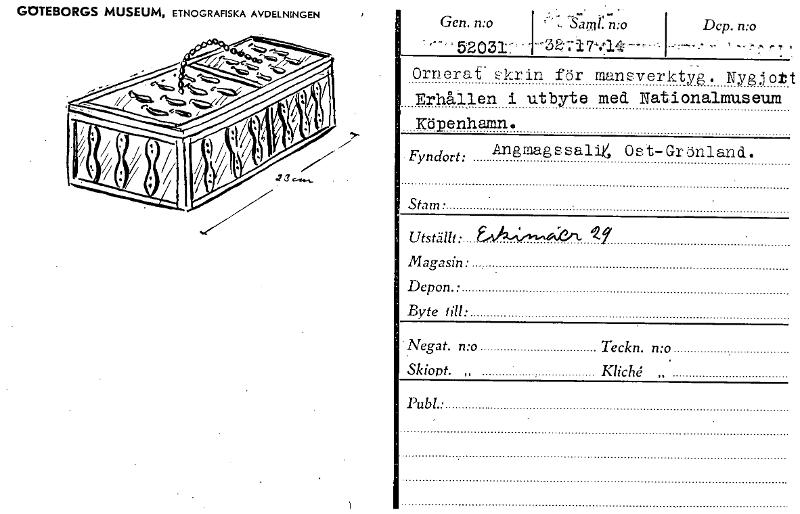 GÖTEBORGS MUSEUM, ETNOGRAFISKA AVDELNINGEN
23 cm
Gen. n:o Saml. n:o Dep. n:o
52031 32.17.14
Ornerat skrin för mansverktyg. Nygjort
Erhållen i utbyte med Nationalmuseum
Köpenhamn.
Fyndort: Angmagssalik, Ost-Grönland.
Stam:
Utställt: Eskimåer 29
Magasin:
Depon.:
Byte till:
Negat. n:o Teckn. n:o
Skiopt. „ Kliché „
Publ.: